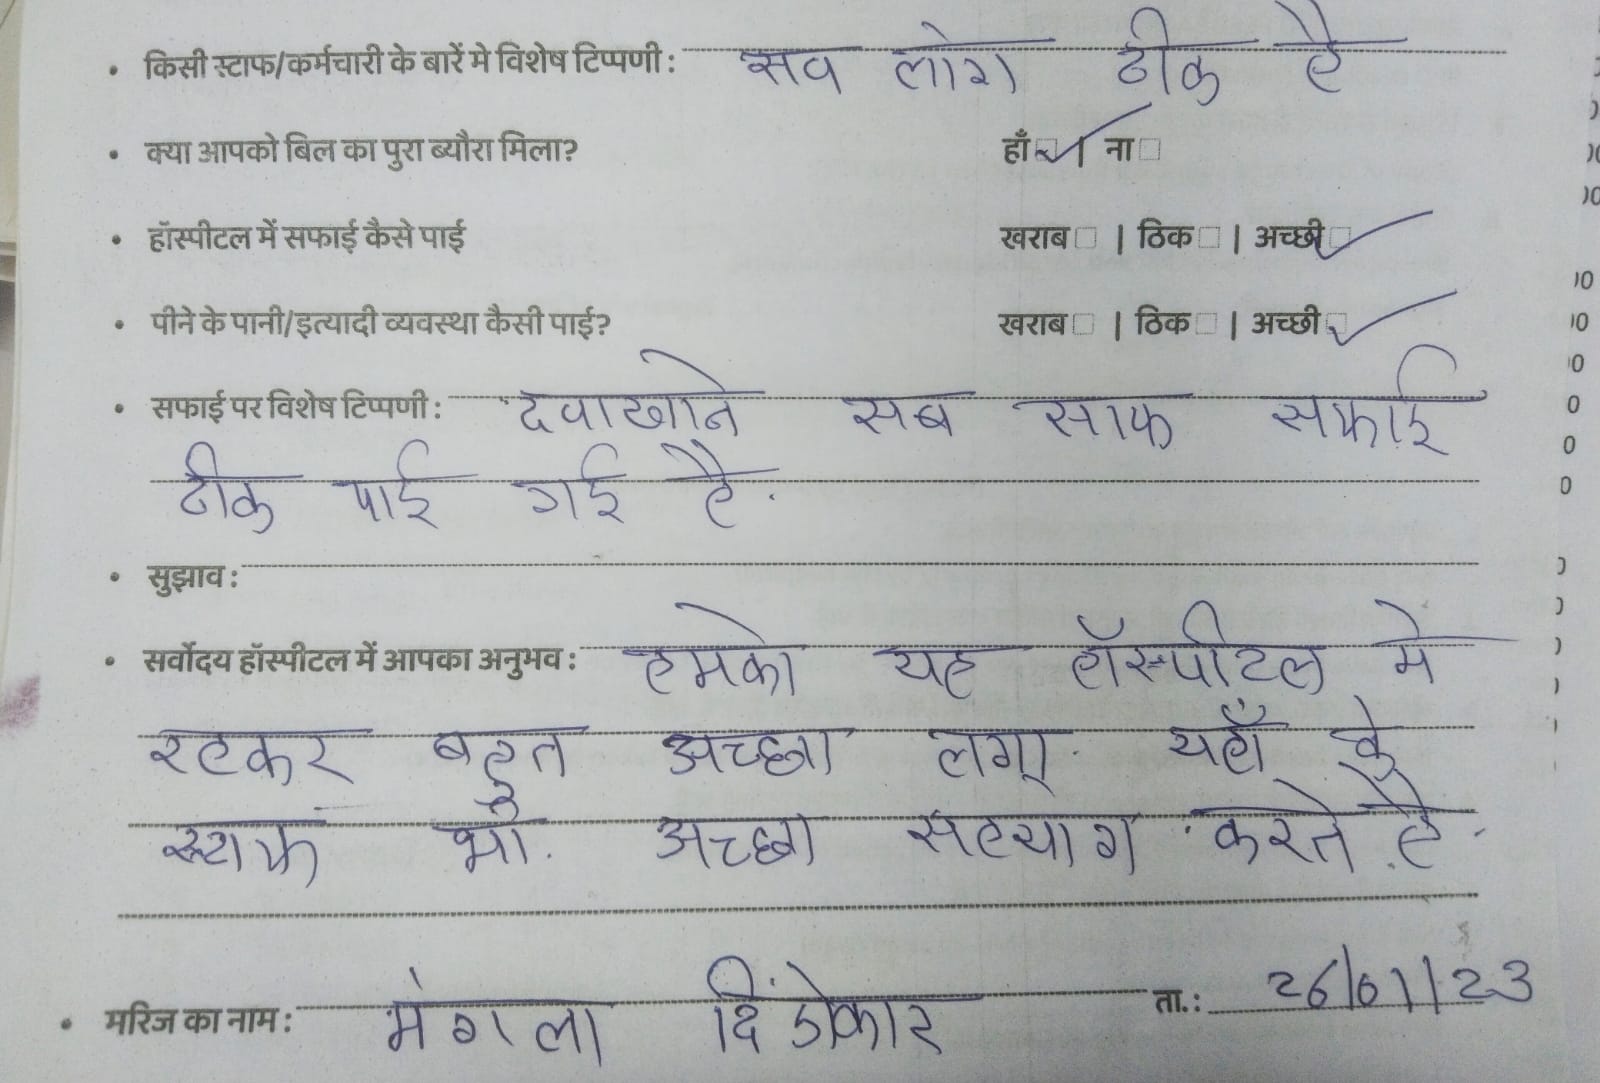 • किसी स्टाफ/कर्मचारी के बारें मे विशेष टिप्पणी : सव लोग ठीक है
• क्या आपको बिल का पुरा ब्यौरा मिला? हाँ☑ | ना☐
• हॉस्पीटल में सफाई कैसे पाई खराब☐ | ठिक☐ | अच्छी☑
• पीने के पानी/इत्यादी व्यवस्था कैसी पाई? खराब☐ | ठिक☐ | अच्छी☑
• सफाई पर विशेष टिप्पणी : दवाखाने सब साफ सफाई
ठीक पाई गई है.
• सुझाव :
• सर्वोदय हॉस्पीटल में आपका अनुभव : हमको यह हॉस्पीटल मे
रहकर बहुत अच्छा लगा यहाँ के
स्टाफ भी अच्छा सहयाग करते है.
• मरिज का नाम : मंगला ता.: 26/01/23